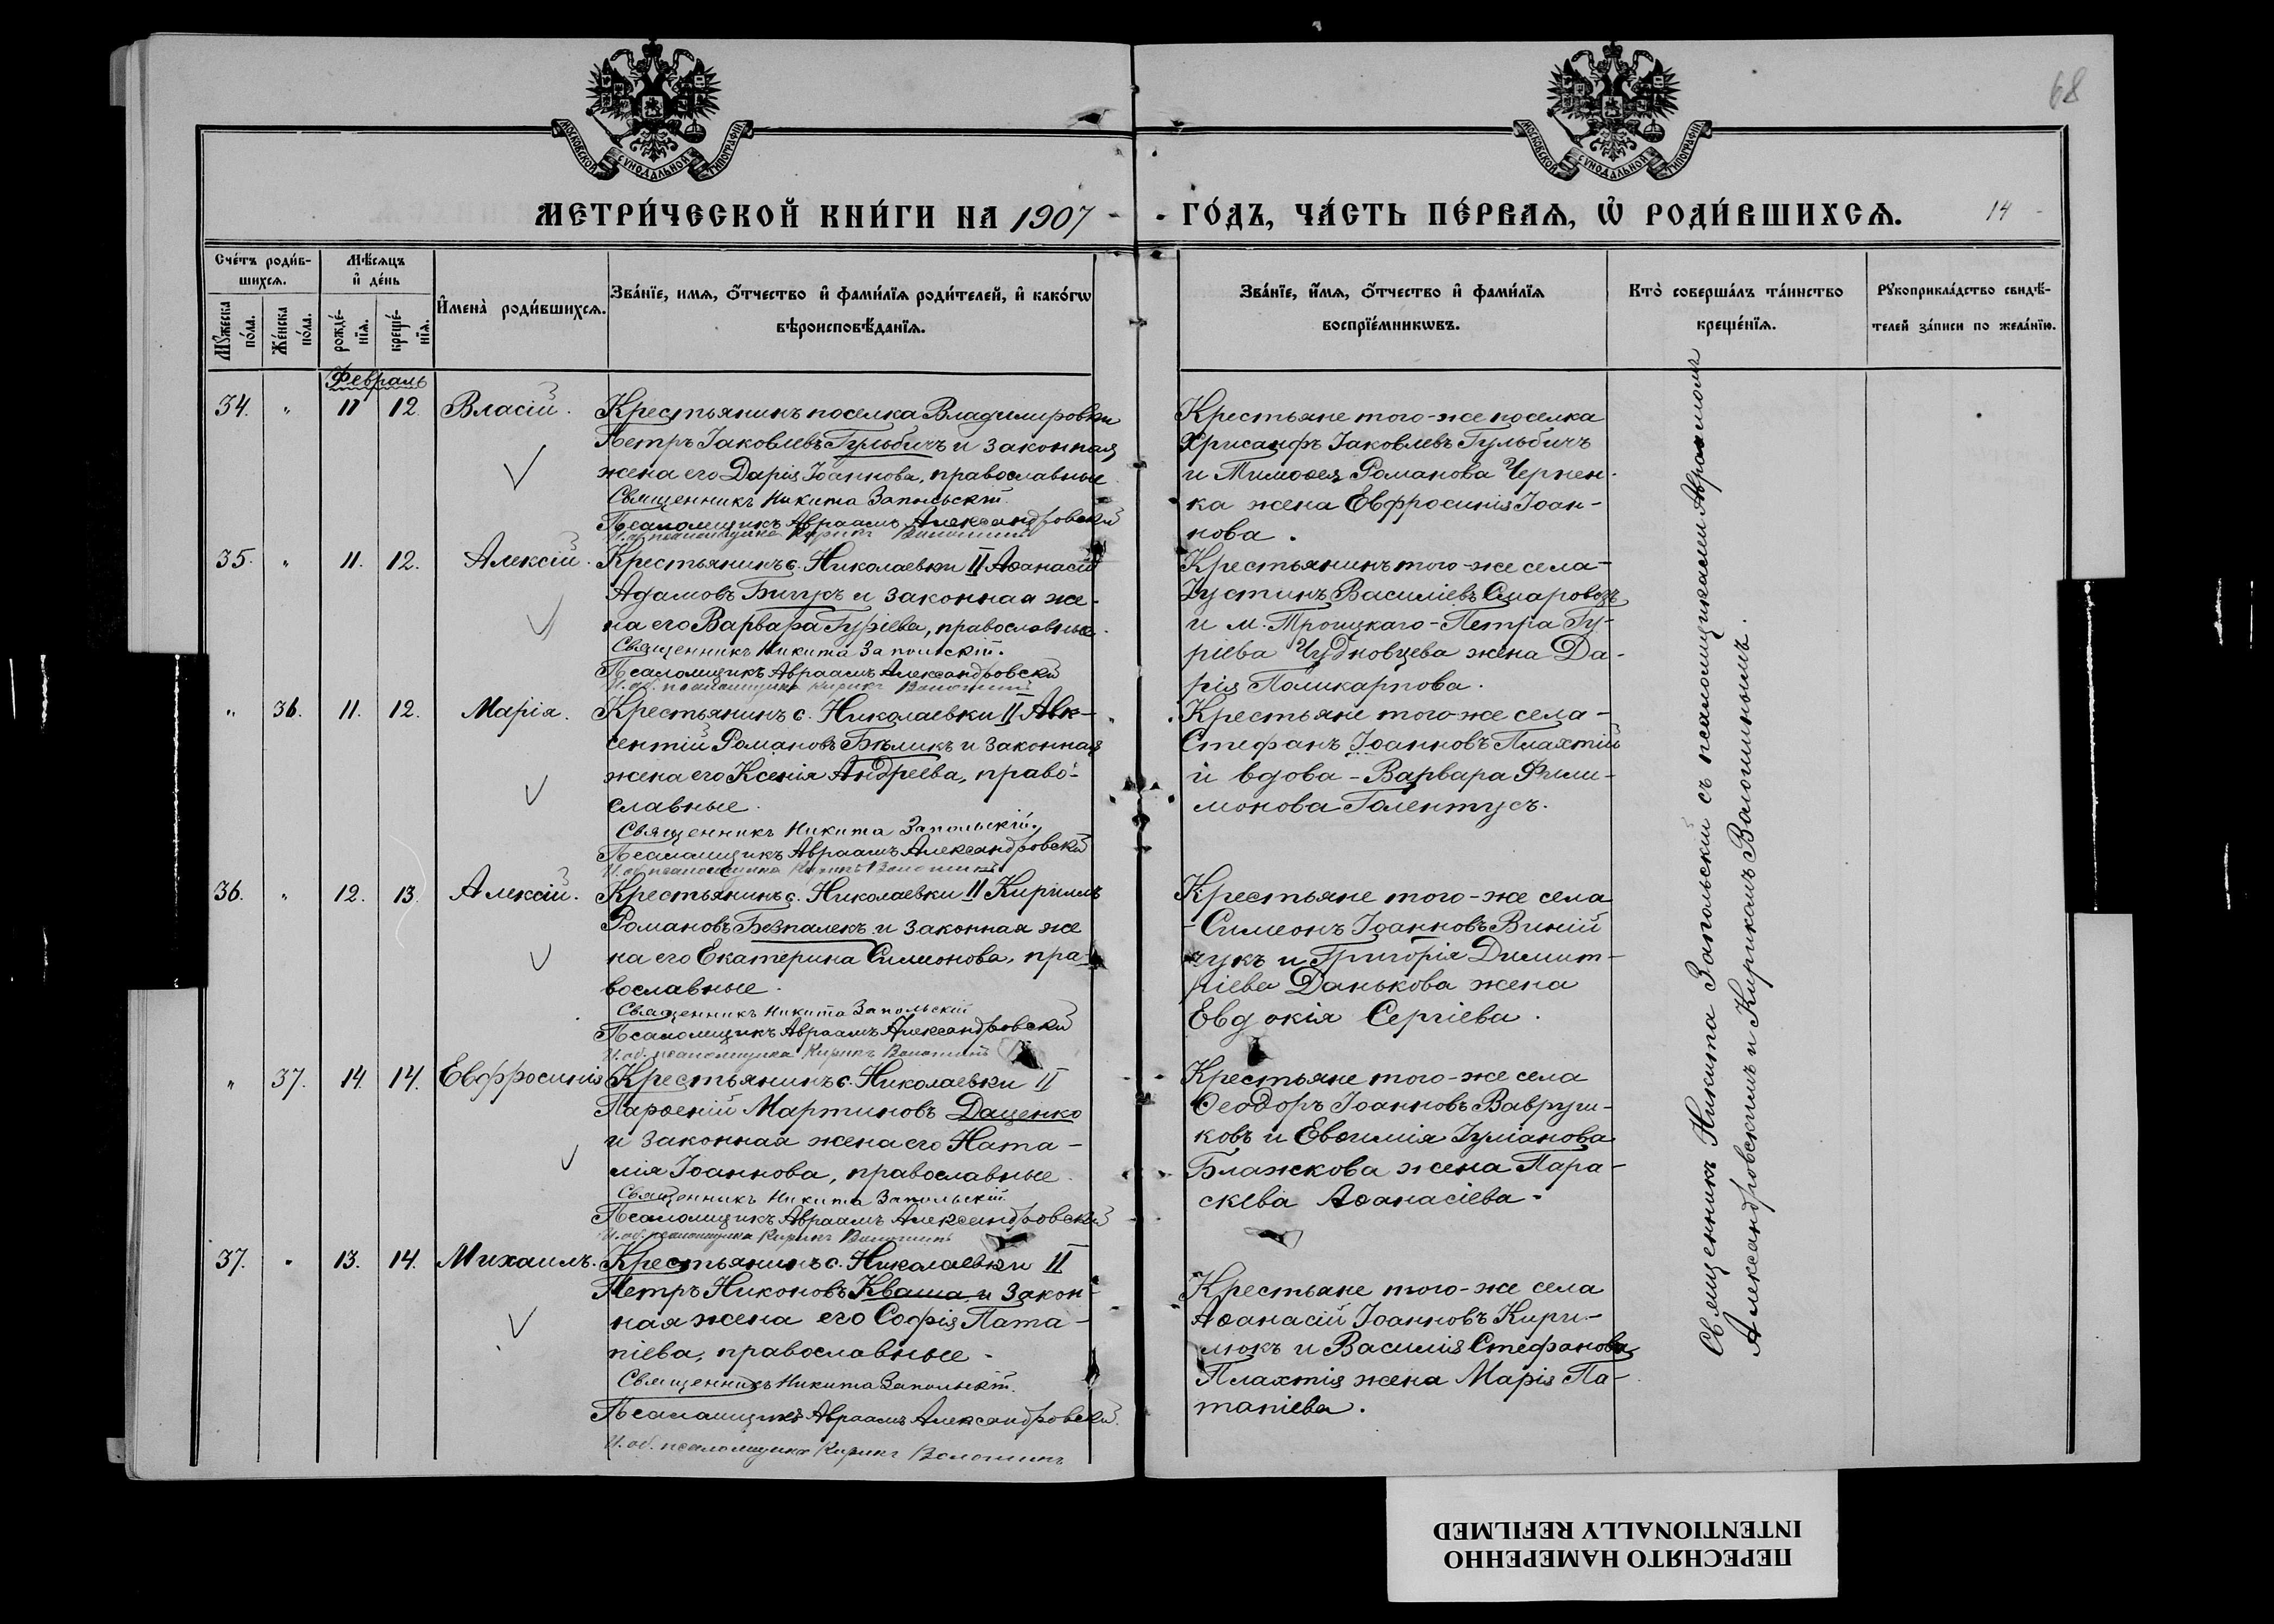 68
МОСКОВСКОЙ СѴНОДАЛЬНОЙ ТИПОГРАФІИ
МОСКОВСКОЙ СѴНОДАЛЬНОЙ ТИПОГРАФІИ
МЕТРИ́ЧЕСКОЙ КНИ́ГИ НА 1907
ГО́ДЪ, ЧА́СТЬ ПЕ́РВАѦ, Ѡ҆ РОДИ́ВШИХСѦ.
14
Сче́тъ роди́в-
шихсѧ.
Мꙋ́жеска по́ла.
Же́нска по́ла.
Мѣ́сѧцъ
и҆ де́нь
рожде́-нїѧ.
креще́-нїѧ.
И҆мена̀ роди́вшихсѧ.
Зва́нїе, имѧ, ѻ҆́тчество и҆ фами́лїѧ роди́телей, и҆ како́гѡ
вѣроисповѣ́данїѧ.
Зва́нїе, и҆́мѧ, ѻ҆́тчество и҆ фами́лїѧ
воспрїе́мникѡвъ.
Кто̀ соверша́лъ та́инство
креще́нїѧ.
Рꙋкоприкла́дство свидѣ́-
телей за́писи по жела́нїю.
Февраль
34. " 11 12. Власій.
Крестьянинъ поселка Владимировки
Петръ Іаковлевъ Гульбичъ и законная
жена его Дарія Іоаннова, православные
Священникъ Никита Запольскій.
Псаломщикъ Авраамъ Александровскій
И. об. псаломщика Кирикъ Волошинъ
Крестьяне того-же поселка
Хрисанфъ Іаковлевъ Гульбичъ
и Тимоѳея Романова Чернен-
ка жена Евфросинія Іоан-
нова.
35. " 11. 12. Алексій.
Крестьянинъ с. Николаевки II Аѳанасій
Адамовъ Бигусъ и законная же-
на его Варвара Гуріева, православные.
Священникъ Никита Запольскій.
Псаломщикъ Авраамъ Александровскій
И. об. псаломщика Кирикъ Волошинъ
Крестьянинъ того-же села-
Іустинъ Василіевъ Смаровозъ
и м. Троицкаго-Петра Гу-
ріева Чудновцева жена Да-
рія Поликарпова.
" 36. 11. 12. Марія.
Крестьянинъ с. Николаевки II Авк-
сентій Романовъ Бѣликъ и законная
жена его Ксенія Андреева, право-
славные.
Священникъ Никита Запольскій.
Псаломщикъ Авраамъ Александровскій
И. об. псаломщика Кирикъ Волошинъ
Крестьяне того же села-
Стефанъ Іоанновъ Плахтій
и вдова-Варвара Фили-
монова Галентусъ.
36. " 12. 13. Алексій.
Крестьянинъ с. Николаевки II Кириллъ
Романовъ Безпалекъ и законная же
на его Екатерина Симеонова, пра-
вославные.
Священникъ Никита Запольскій
Псаломщикъ Авраамъ Александровскій
И. об. псаломщика Кирикъ Волошинъ
Крестьяне того-же села
-Симеонъ Іоанновъ Виній
чукъ и Григорія Димит-
ріева Данькова жена
Евдокія Сергіева.
" 37. 14. 14. Евфросинія
Крестьянинъ с. Николаевки II
Парѳеній Мартиновъ Даценко
и законная жена его Ната-
лія Іоаннова, православные.
Священникъ Никита Запольскій.
Псаломщикъ Авраамъ Александровскій
И. об. псаломщика Кирикъ Волошинъ
Крестьяне того-же села
Ѳеодоръ Іоанновъ Вавруши-
ковъ и Евѳимія Іуліанова
Блажкова жена Пара-
скева Аѳанасіева.
37. " 13. 14. Михаилъ.
Крестьянинъ с. Николаевки II
Петръ Никоновъ Кваша и закон-
ная жена его Софія Пата-
піева, православные.
Священникъ Никита Запольскій.
Псаломщикъ Авраамъ Александровскій.
И. об. псаломщика Кирикъ Волошинъ
Крестьяне того-же села
Аѳанасій Іоанновъ Кири-
люкъ и Василія Стефанова
Плахтія жена Марія Па-
тапіева.
Священникъ Никита Запольскій съ псаломщиками Авраамомъ
Александровскимъ и Кирикомъ Волошинымъ.
ПЕРЕСНЯТО НАМЕРЕННО
INTENTIONALLY REFILMED